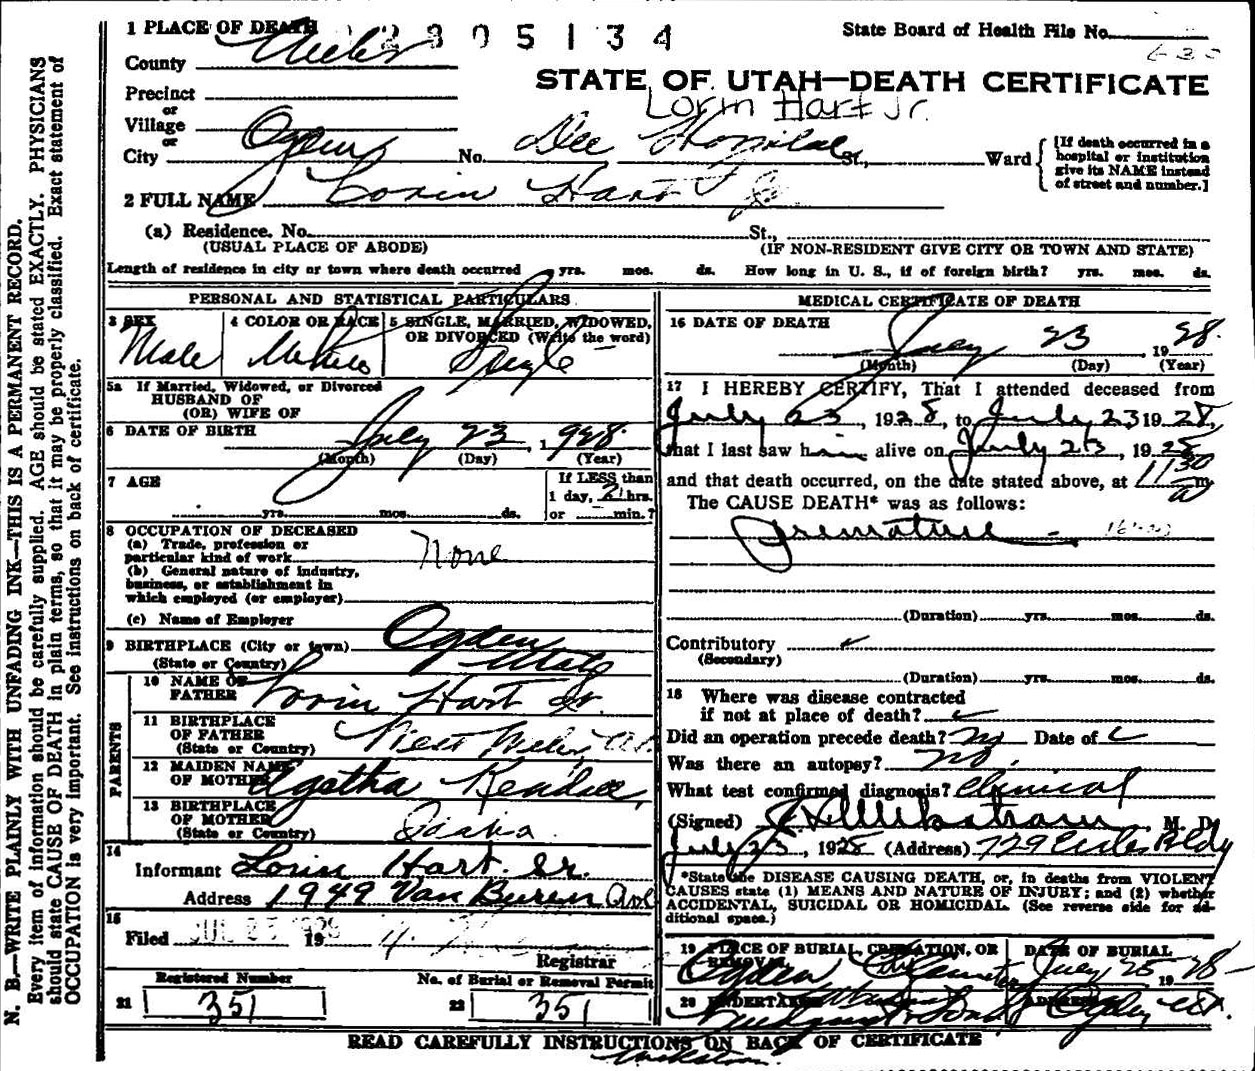 1 PLACE OF DEATH
2 8 0 5 1 3 4
State Board of Health File No.
County Weber
STATE OF UTAH—DEATH CERTIFICATE
Precinct
or
Lorin Hart Jr.
Village
or
City Ogden No. Dee Hospital St., Ward
[If death occurred in a
hospital or institution
give its NAME instead
of street and number.]
2 FULL NAME Lorin Hart Jr
(a) Residence. No. St.,
(USUAL PLACE OF ABODE) (IF NON-RESIDENT GIVE CITY OR TOWN AND STATE)
Length of residence in city or town where death occurred yrs. mos. ds. How long in U. S., if of foreign birth? yrs. mos. ds.
PERSONAL AND STATISTICAL PARTICULARS
3 SEX 4 COLOR OR RACE 5 SINGLE, MARRIED, WIDOWED,
OR DIVORCED (Write the word)
Male White Single
5a If Married, Widowed, or Divorced
HUSBAND OF
(OR) WIFE OF
6 DATE OF BIRTH July 23, 1928
(Month) (Day) (Year)
7 AGE
If LESS than
1 day, hrs.
yrs. mos. ds. or min.?
8 OCCUPATION OF DECEASED
(a) Trade, profession or
particular kind of work None
(b) General nature of industry,
business, or establishment in
which employed (or employer)
(c) Name of Employer
9 BIRTHPLACE (City or town) Ogden
(State or Country) Utah
PARENTS
10 NAME OF
FATHER Lorin Hart Sr.
11 BIRTHPLACE
OF FATHER
(State or Country) West Weber, Ut.
12 MAIDEN NAME
OF MOTHER Agatha
13 BIRTHPLACE
OF MOTHER
(State or Country) Idaho
14
Informant Lorin Hart Sr.
Address 1949 Van Buren Ave
15
Filed JUL 25 1928 19
Registrar
Registered Number No. of Burial or Removal Permit
21 351 22 351
MEDICAL CERTIFICATE OF DEATH
16 DATE OF DEATH
July 23, 1928.
(Month) (Day) (Year)
17 I HEREBY CERTIFY, That I attended deceased from
July 23, 1928, to July 23 1928,
that I last saw him alive on July 23, 1928
and that death occurred, on the date stated above, at 1130 a m
The CAUSE DEATH* was as follows:
Premature
(Duration) yrs. mos. ds.
Contributory
(Secondary)
(Duration) yrs. mos. ds.
18 Where was disease contracted
if not at place of death?
Did an operation precede death? no Date of
Was there an autopsy? no.
What test confirmed diagnosis? Clinical
(Signed) M. D.
July 23, 1928 (Address) 729 Eccles Bldg
*State the DISEASE CAUSING DEATH, or, in deaths from VIOLENT
CAUSES state (1) MEANS AND NATURE OF INJURY; and (2) whether
ACCIDENTAL, SUICIDAL OR HOMICIDAL. (See reverse side for ad-
ditional space.)
19 PLACE OF BURIAL, CREMATION, OR
REMOVAL DATE OF BURIAL
Ogden City Cemetery July 25 1928
20 UNDERTAKER ADDRESS
Ogden Ut.
READ CAREFULLY INSTRUCTIONS ON BACK OF CERTIFICATE
N. B.—WRITE PLAINLY WITH UNFADING INK—THIS IS A PERMANENT RECORD.
Every item of information should be carefully supplied. AGE should be stated EXACTLY. PHYSICIANS
should state CAUSE OF DEATH in plain terms, so that it may be properly classified. Exact statement of
OCCUPATION is very important. See instructions on back of certificate.